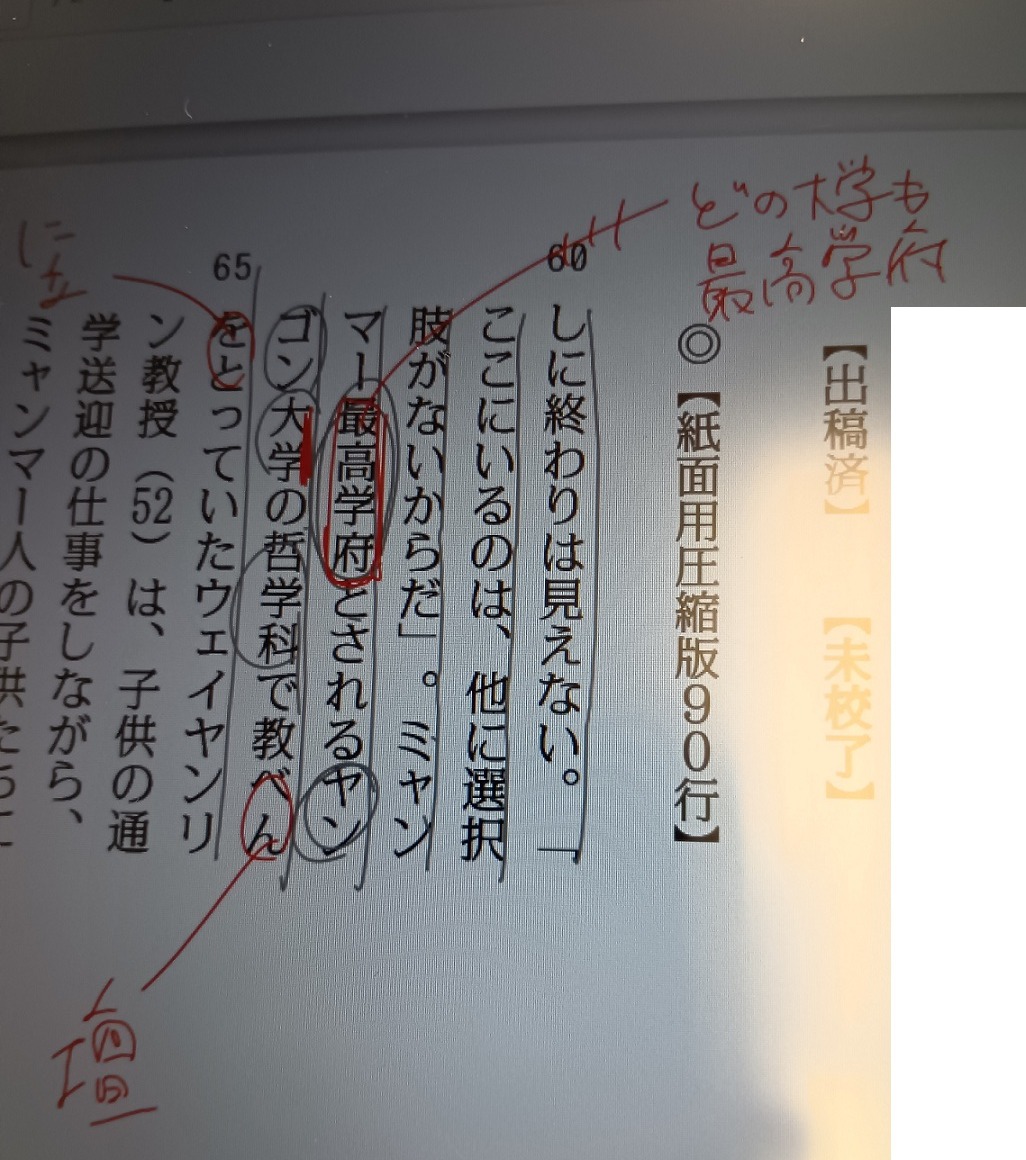 【出稿済】　【未校了】
◎【紙面用圧縮版９０行】
どの大学も
最高学府
60
しに終わりは見えない。「
ここにいるのは、他に選択
肢がないからだ」。ミャン
マー最高学府とされるヤン
ゴン大学の哲学科で教べん
65
をとっていたウェイヤンリ
ン教授（52）は、子供の通
学送迎の仕事をしながら、
ミャンマー人の子供たちに
に
壇